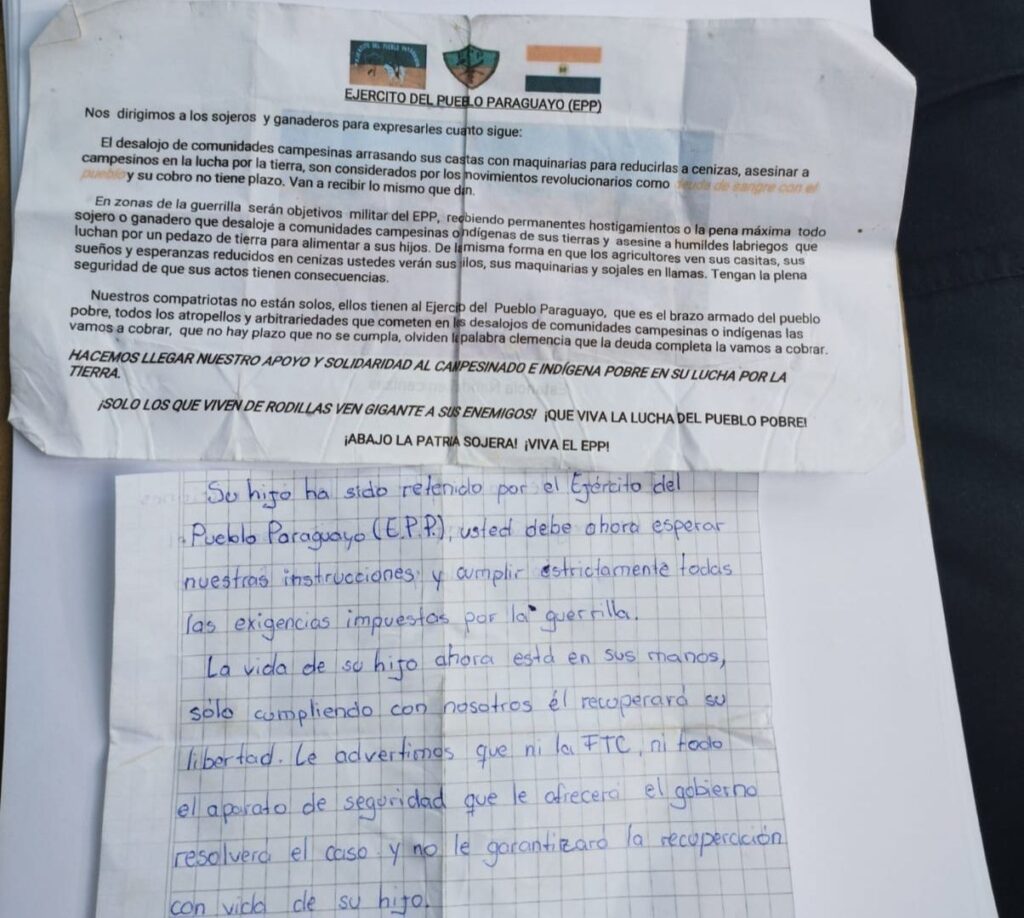 EJERCITO DEL PUEBLO PARAGUAYO
EJERCITO DEL PUEBLO PARAGUAYO (EPP)
Nos dirigimos a los sojeros y ganaderos para expresarles cuanto sigue:
El desalojo de comunidades campesinas arrasando sus castas con maquinarias para reducirlas a cenizas, asesinar a
campesinos en la lucha por la tierra, son considerados por los movimientos revolucionarios como deuda de sangre con el
pueblo y su cobro no tiene plazo. Van a recibir lo mismo que den.
En zonas de la guerrilla serán objetivos militar del EPP, recibiendo permanentes hostigamientos o la pena máxima todo
sojero o ganadero que desaloje a comunidades campesinas o indígenas de sus tierras y asesine a humildes labriegos que
luchan por un pedazo de tierra para alimentar a sus hijos. De la misma forma en que los agricultores ven sus casitas, sus
sueños y esperanzas reducidos en cenizas ustedes verán sus silos, sus maquinarias y sojales en llamas. Tengan la plena
seguridad de que sus actos tienen consecuencias.
Nuestros compatriotas no están solos, ellos tienen al Ejercito del Pueblo Paraguayo, que es el brazo armado del pueblo
pobre, todos los atropellos y arbitrariedades que cometen en los desalojos de comunidades campesinas o indígenas las
vamos a cobrar, que no hay plazo que no se cumpla, olviden la palabra clemencia que la deuda completa la vamos a cobrar.
HACEMOS LLEGAR NUESTRO APOYO Y SOLIDARIDAD AL CAMPESINADO E INDÍGENA POBRE EN SU LUCHA POR LA
TIERRA.
¡SOLO LOS QUE VIVEN DE RODILLAS VEN GIGANTE A SUS ENEMIGOS! ¡QUE VIVA LA LUCHA DEL PUEBLO POBRE!
¡ABAJO LA PATRIA SOJERA! ¡VIVA EL EPP!
Su hijo ha sido retenido por el Ejército del
Pueblo Paraguayo (E.P.P.), usted debe ahora esperar
nuestras instrucciones y cumplir estrictamente todas
las exigencias impuestas por la guerrilla.
La vida de su hijo ahora está en sus manos,
sólo cumpliendo con nosotros él recuperará su
libertad. Le advertimos que ni la FTC, ni todo
el aparato de seguridad que le ofrecerá el gobierno
resolverá el caso y no le garantizará la recuperación
con vida de su hijo.